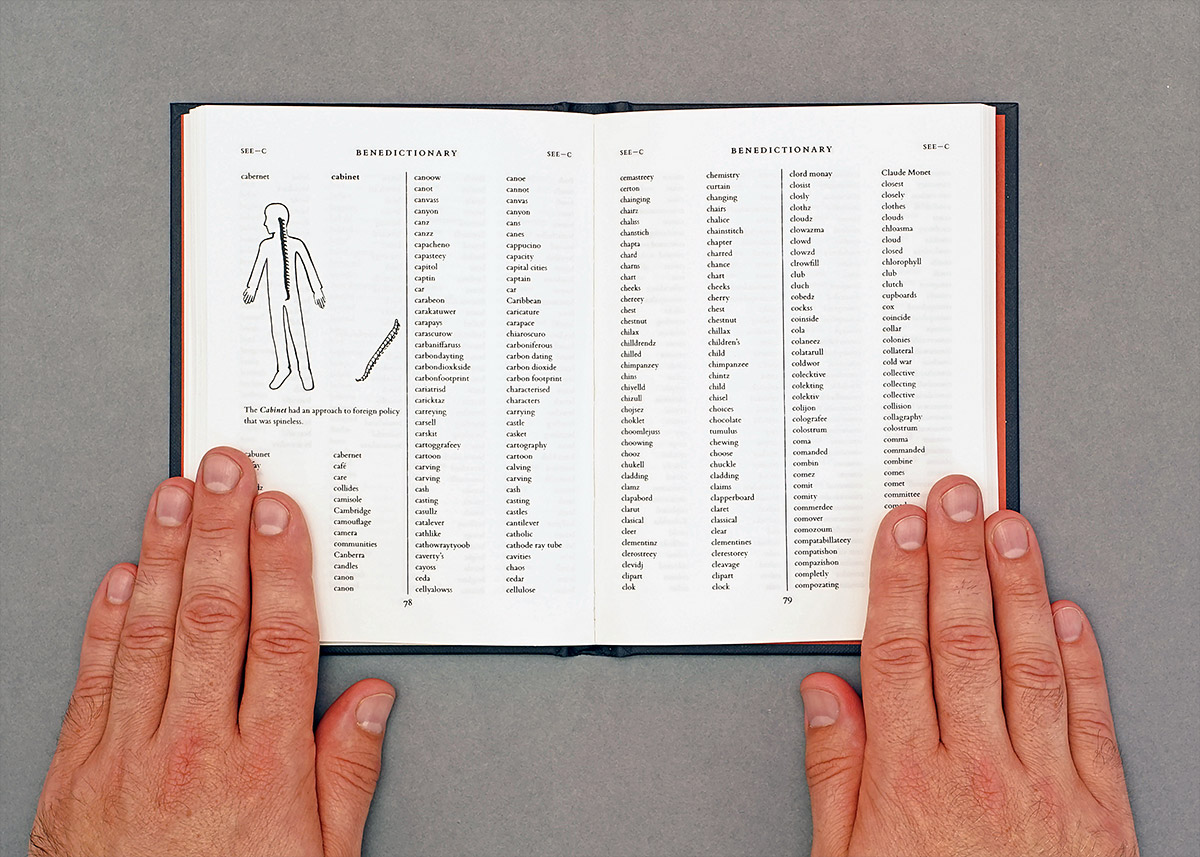 SEE–C BENEDICTIONARY SEE–C
cabernet cabinet
The Cabinet had an approach to foreign policy
that was spineless.
cabernet
café
care
collides
camisole
Cambridge
camouflage
camera
communities
Canberra
candles
canon
canon
canoow canoe
canot cannot
canvass canvas
canyon canyon
canz cans
canzz canes
capacheno cappucino
capasteey capacity
capitol capital cities
captin captain
car car
carabeon Caribbean
carakatuwer caricature
carapays carapace
carascurow chiaroscuro
carbaniffaruss carboniferous
carbondayting carbon dating
carbondioxkside carbon dioxide
carbonfootprint carbon footprint
cariatrisd characterised
caricktaz characters
carreying carrying
carsell castle
carskit casket
cartoggrafeey cartography
cartoon cartoon
carving calving
carving carving
cash cash
casting casting
casullz castles
catalever cantilever
cathlike catholic
cathowraytyoob cathode ray tube
caverty's cavities
cayoss chaos
ceda cedar
cellyalowss cellulose
78
SEE–C BENEDICTIONARY SEE–C
cemastreey chemistry
certon curtain
chainging changing
chairz chairs
chaliss chalice
chanstich chainstitch
chapta chapter
chard charred
charns chance
chart chart
cheeks cheeks
chereey cherry
chest chest
chestnut chestnut
chilax chillax
chilldrendz children's
chilled child
chimpanzey chimpanzee
chins chintz
chivelld child
chizull chisel
chojsez choices
choklet chocolate
choomlejuss tumulus
choowing chewing
chooz choose
chukell chuckle
cladding cladding
clamz claims
clapabord clapperboard
clarut claret
clasical classical
cleer clear
clementinz clementines
clerostreey clerestorey
clevidj cleavage
clipart clipart
clok clock
clord monay Claude Monet
closist closest
closly closely
clothz clothes
cloudz clouds
clowazma chloasma
clowd cloud
clowzd closed
clrowfill chlorophyll
club club
cluch clutch
cobedz cupboards
cockss cox
coinside coincide
cola collar
colaneez colonies
colatarull collateral
coldwor cold war
colecktive collective
colekting collecting
colektiv collective
colijon collision
colografee collagraphy
colostrum colostrum
coma comma
comanded commanded
combin combine
comez comes
comit comet
comity committee
commerdee
comover
comozoum
compatabillateey
compatishon
compazishon
completly
compozating
79